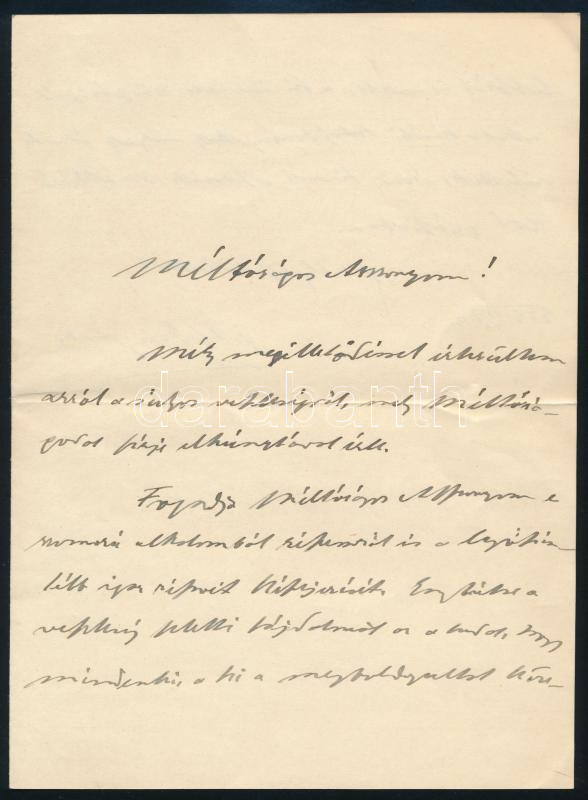 Méltóságos Asszonyom!
Mély megilletődéssel értesültem
arról a súlyos veszteségről, mely Méltósá-
godat férje elhunytával érte.
Fogadja Méltóságos Asszonyom e
szomorú alkalomból részemről is a legőszin-
tébb igaz részvét kifejezését. Enyhítse a
veszteség feletti fájdalmát az a tudat, hogy
mindenki, a ki a megboldogultat köze-
darabanth